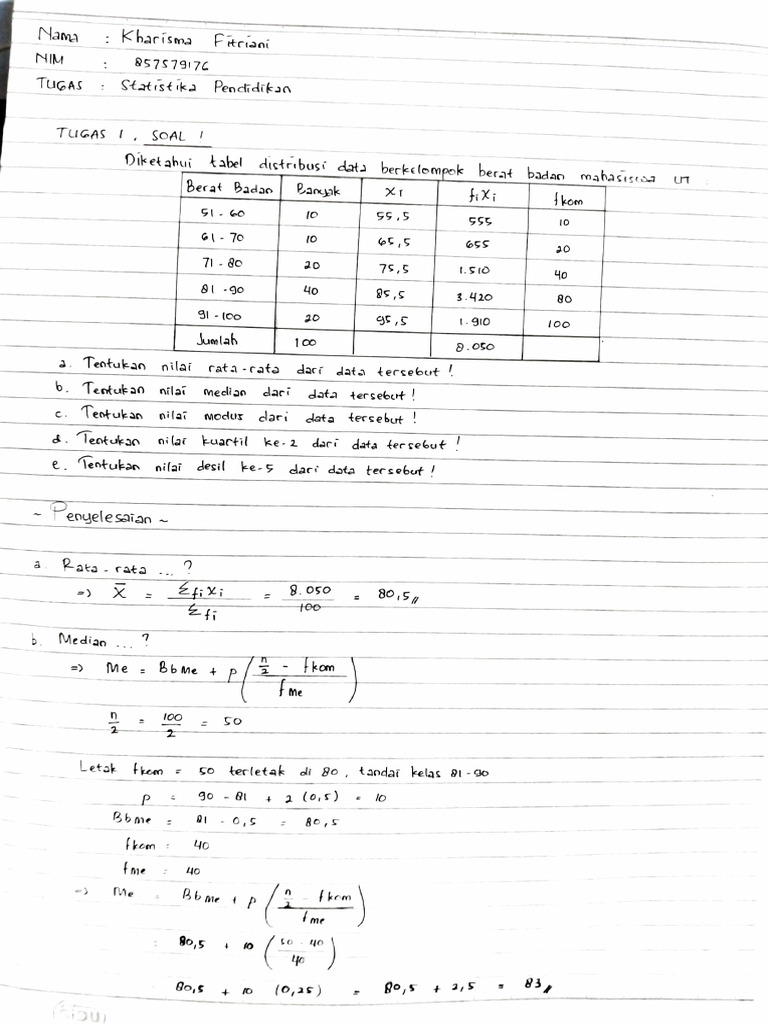 Nama : Kharisma Fitriani
NIM : 857579176
TUGAS : Statistika Pendidikan
TUGAS 1, SOAL 1
Diketahui tabel distribusi data berkelompok berat badan mahasiswa UT
Berat Badan Banyak XI fiXi fkom
51 - 60 10 55,5 555 10
61 - 70 10 65,5 655 20
71 - 80 20 75,5 1.510 40
81 - 90 40 85,5 3.420 80
91 - 100 20 95,5 1.910 100
Jumlah 100 8.050
a. Tentukan nilai rata-rata dari data tersebut!
b. Tentukan nilai median dari data tersebut!
c. Tentukan nilai modus dari data tersebut!
d. Tentukan nilai kuartil ke-2 dari data tersebut!
e. Tentukan nilai desil ke-5 dari data tersebut!
~ Penyelesaian ~
a. Rata-rata ...?
=> X̄ = Σfixi / Σfi = 8.050 / 100 = 80,5//
b. Median ...?
=> Me = BbMe + p ( n/2 - fkom / fme )
n/2 = 100/2 = 50
Letak fkom = 50 terletak di 80, tandai kelas 81-90
p = 90 - 81 + 2 (0,5) = 10
Bbme = 81 - 0,5 = 80,5
fkom : 40
fme : 40
=> Me = Bbme + p ( n/2 - fkom / fme )
: 80,5 + 10 ( 50 - 40 / 40 )
80,5 + 10 (0,25) = 80,5 + 2,5 = 83//